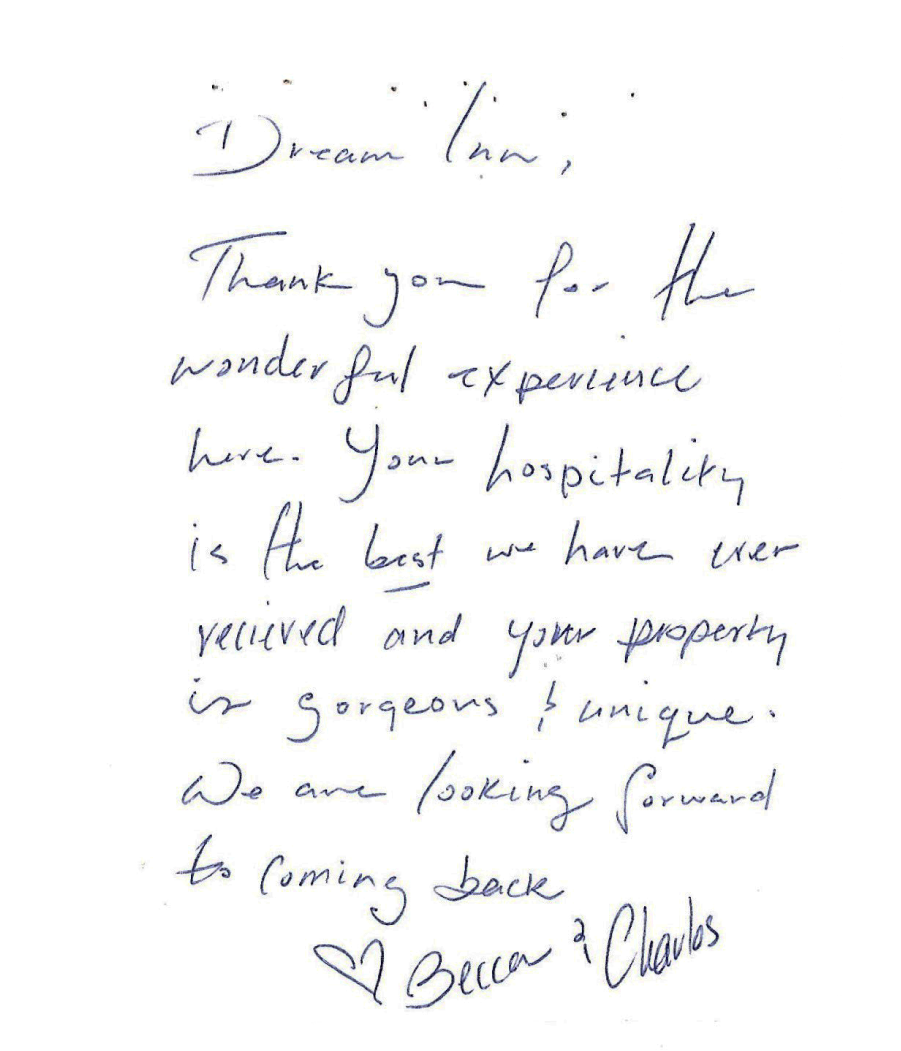 Dream Inn,
Thank you for the
wonderful experience
here. Your hospitality
is the best we have ever
recieved and your property
is gorgeous & unique.
We are looking forward
to coming back
♡ Becca & Charles